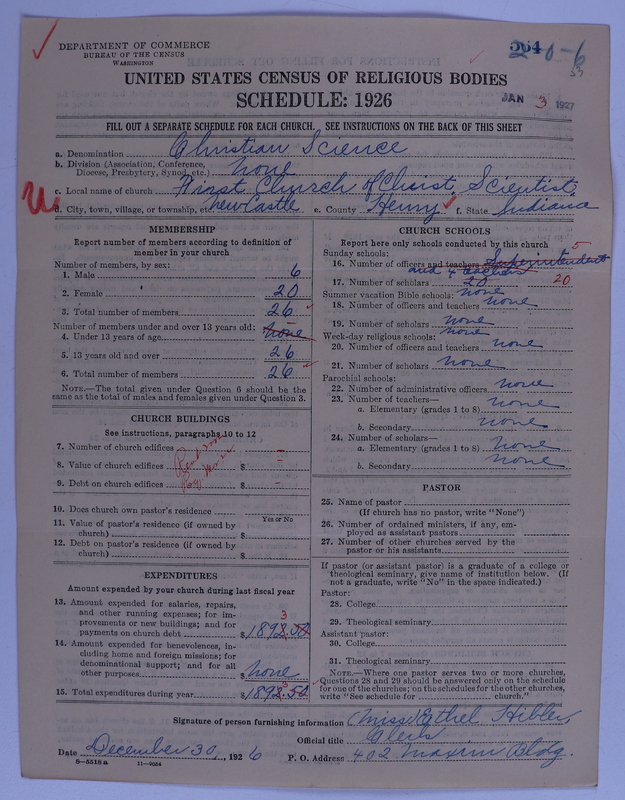 DEPARTMENT OF COMMERCE
BUREAU OF THE CENSUS
WASHINGTON
564
2-0-6
53
UNITED STATES CENSUS OF RELIGIOUS BODIES
SCHEDULE: 1926
JAN 3 1927
FILL OUT A SEPARATE SCHEDULE FOR EACH CHURCH. SEE INSTRUCTIONS ON THE BACK OF THIS SHEET
a. Denomination Christian Science
b. Division (Association, Conference, Diocese, Presbytery, Synod, etc.) none
c. Local name of church First Church of Christ, Scientist,
d. City, town, village, or township, etc. New Castle e. County Henry f. State Indiana
MEMBERSHIP
Report number of members according to definition of
member in your church
Number of members, by sex:
1. Male 6
2. Female 20
3. Total number of members 26
Number of members under and over 13 years old:
4. Under 13 years of age none
5. 13 years old and over 26
6. Total number of members 26
NOTE.—The total given under Question 6 should be the
same as the total of males and females given under Question 3.
CHURCH BUILDINGS
See instructions, paragraphs 10 to 12
7. Number of church edifices –
8. Value of church edifices $ –
9. Debt on church edifices $ –
10. Does church own pastor's residence
Yes or No
11. Value of pastor's residence (if owned by
church) $
12. Debt on pastor's residence (if owned by
church) $
EXPENDITURES
Amount expended by your church during last fiscal year
13. Amount expended for salaries, repairs,
and other running expenses; for im-
provements or new buildings; and for
payments on church debt $1892.50
3
14. Amount expended for benevolences, in-
cluding home and foreign missions; for
denominational support; and for all
other purposes $ none
15. Total expenditures during year $1892.50
3
CHURCH SCHOOLS
Report here only schools conducted by this church
Sunday schools:
16. Number of officers and teachers Superintendent 5
and 4 teachers
17. Number of scholars 20 20
Summer vacation Bible schools: none
18. Number of officers and teachers none
19. Number of scholars none
Week-day religious schools: none
20. Number of officers and teachers none
21. Number of scholars none
Parochial schools:
22. Number of administrative officers none
23. Number of teachers—
a. Elementary (grades 1 to 8) none
b. Secondary none
24. Number of scholars—
a. Elementary (grades 1 to 8) none
b. Secondary none
PASTOR
25. Name of pastor
(If church has no pastor, write "None")
26. Number of ordained ministers, if any, em-
ployed as assistant pastors
27. Number of other churches served by the
pastor or his assistants
If pastor (or assistant pastor) is a graduate of a college or
theological seminary, give name of institution below. (If
not a graduate, write "No" in the space indicated.)
Pastor:
28. College
29. Theological seminary
Assistant pastor:
30. College
31. Theological seminary
NOTE.—Where one pastor serves two or more churches,
Questions 28 and 29 should be answered only on the schedule
for one of the churches; on the schedules for the other churches,
write "See schedule for church."
Signature of person furnishing information Miss Ethel Hibler,
Official title Clerk
Date December 30, 1926 P. O. Address 402 Maxim Bldg.
6—5518a 11—9064